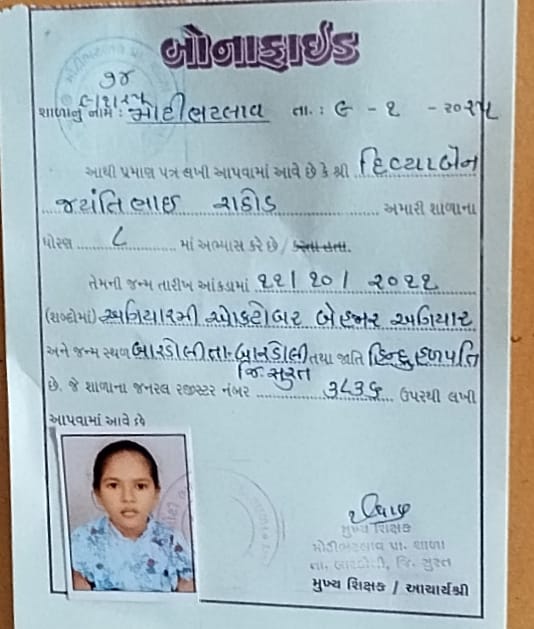 બોનાફાઈડ
૭૪
શાળાનું નામ : મોટીભટલાવ તા. : ૯ - ૧ - ૨૦૨૫
આથી પ્રમાણ પત્ર લખી આપવામાં આવે છે કે શ્રી દિવ્યાબેન
જયંતિભાઈ રાઠોડ અમારી શાળાના
ધોરણ ૮ માં અભ્યાસ કરે છે / કરતા હતા.
તેમની જન્મ તારીખ આંકડામાં ૧૧ / ૧૦ / ૨૦૧૧
(શબ્દોમાં) અગિયારમી ઓકટોબર બે હજાર અગિયાર
અને જન્મ સ્થળ બારડોલી તા. બારડોલી તથા જાતિ હિન્દુ હળપતિ
જિ. સુરત
છે. જે શાળાના જનરલ રજીસ્ટર નંબર ૩૮૩૬ ઉપરથી લખી
આપવામાં આવે છે
મુખ્ય શિક્ષક
મોટીભટલાવ પ્રા. શાળા
તા. બારડોલી, જિ. સુરત
મુખ્ય શિક્ષક / આચાર્યશ્રી